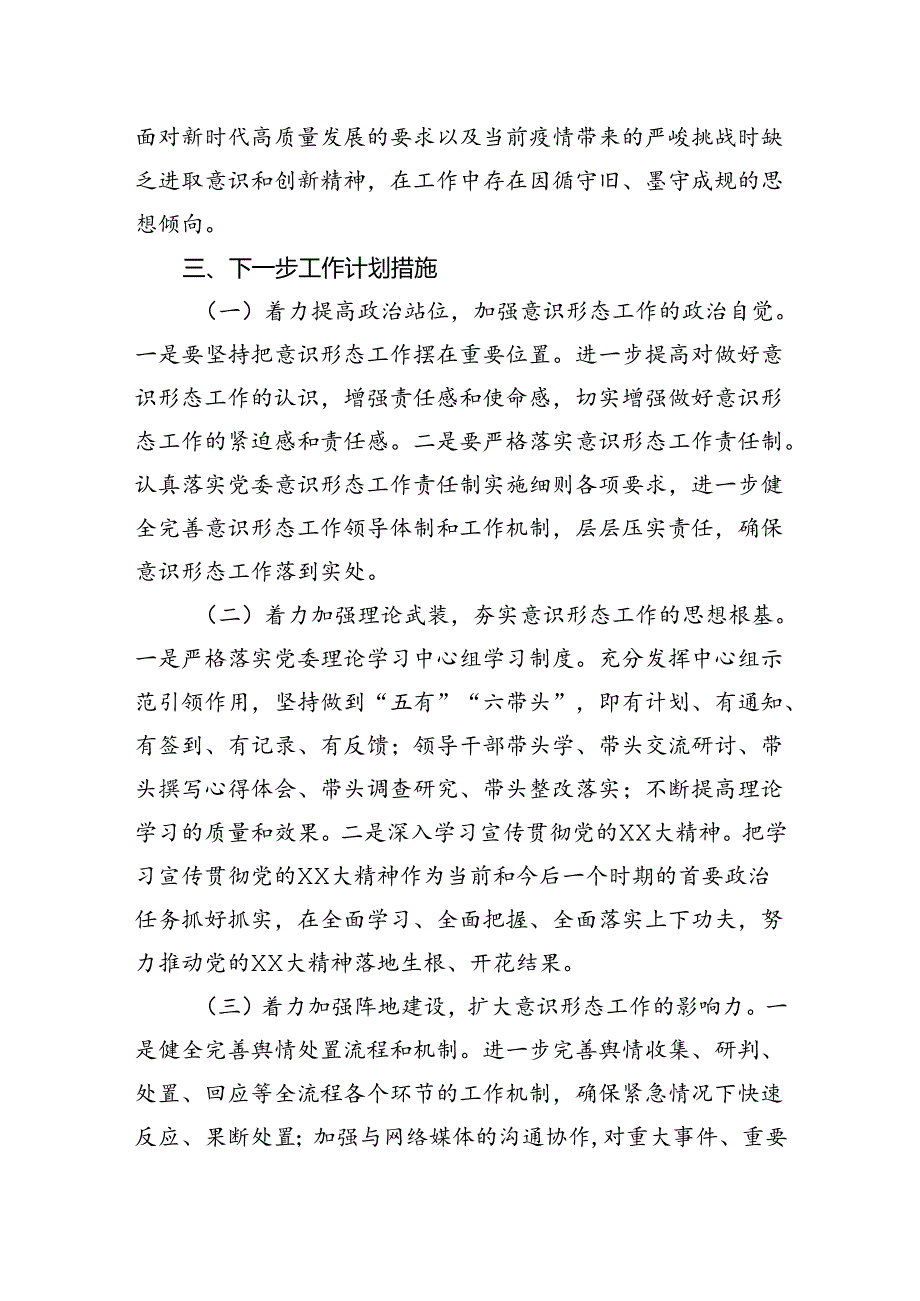 面对新时代高质量发展的要求以及当前疫情带来的严峻挑战时缺
乏进取意识和创新精神，在工作中存在因循守旧、墨守成规的思
想倾向。
三、下一步工作计划措施
（一）着力提高政治站位，加强意识形态工作的政治自觉。
一是要坚持把意识形态工作摆在重要位置。进一步提高对做好意
识形态工作的认识，增强责任感和使命感，切实增强做好意识形
态工作的紧迫感和责任感。二是要严格落实意识形态工作责任制。
认真落实党委意识形态工作责任制实施细则各项要求，进一步健
全完善意识形态工作领导体制和工作机制，层层压实责任，确保
意识形态工作落到实处。
（二）着力加强理论武装，夯实意识形态工作的思想根基。
一是严格落实党委理论学习中心组学习制度。充分发挥中心组示
范引领作用，坚持做到“五有”“六带头”，即有计划、有通知、
有签到、有记录、有反馈；领导干部带头学、带头交流研讨、带
头撰写心得体会、带头调查研究、带头整改落实；不断提高理论
学习的质量和效果。二是深入学习宣传贯彻党的XX大精神。把学
习宣传贯彻党的XX大精神作为当前和今后一个时期的首要政治
任务抓好抓实，在全面学习、全面把握、全面落实上下功夫，努
力推动党的XX大精神落地生根、开花结果。
（三）着力加强阵地建设，扩大意识形态工作的影响力。一
是健全完善舆情处置流程和机制。进一步完善舆情收集、研判、
处置、回应等全流程各个环节的工作机制，确保紧急情况下快速
反应、果断处置；加强与网络媒体的沟通协作，对重大事件、重要